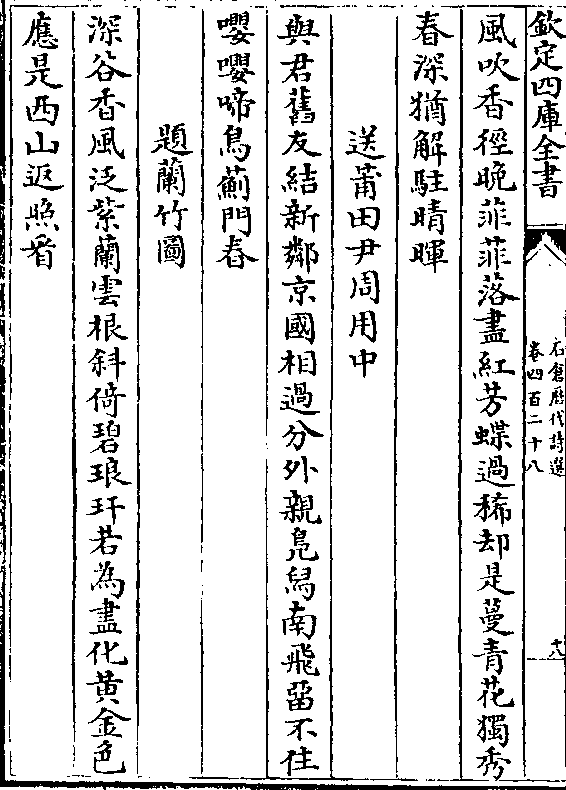 欽定四庫全書
石倉歷代詩選
卷四百二十八
十八
風吹香徑晚菲菲落盡紅芳蝶過稀却是蔓青花獨秀
春深猶解駐晴暉
送莆田尹周用中
與君舊友結新鄰京國相過分外親鳬舄南飛留不住
嚶嚶啼鳥薊門春
題蘭竹圖
深谷香風泛紫蘭雲根斜倚碧琅玕若為盡化黄金色
應是西山返照看